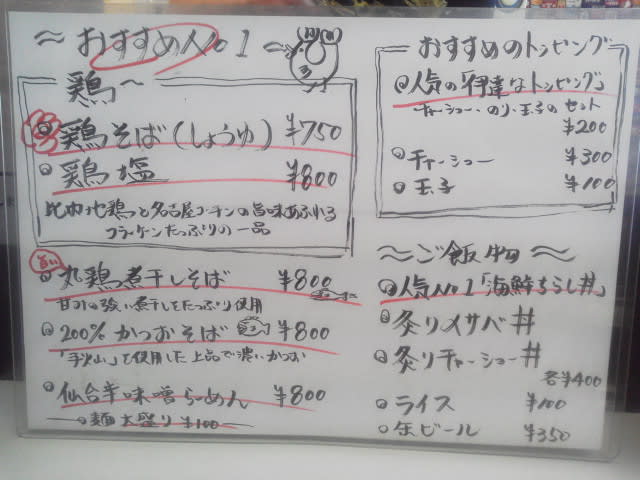 〜おすすめNo1〜
鶏〜
鶏そば(しょうゆ) ¥750
鶏塩 ¥800
比内地鶏と名古屋コーチンの旨味あふれる
コラーゲンたっぷりの一品
旨い
丸鶏煮干しそば ¥800
甘みの強い煮干しをたっぷり使用
200%かつおそば ¥800
「手火山」を使用した上品で濃いかつお
仙台辛味噌らーめん ¥800
麺大盛り ¥100
おすすめのトッピング
人気の「伊達なトッピング」
チャーシュー・のり・玉子のセット
¥200
チャーシュー ¥300
玉子 ¥100
〜ご飯物〜
人気No1「海鮮ちらし丼」
炙りメサバ丼
炙りチャーシュー丼
各¥400
ライス ¥100
缶ビール ¥350